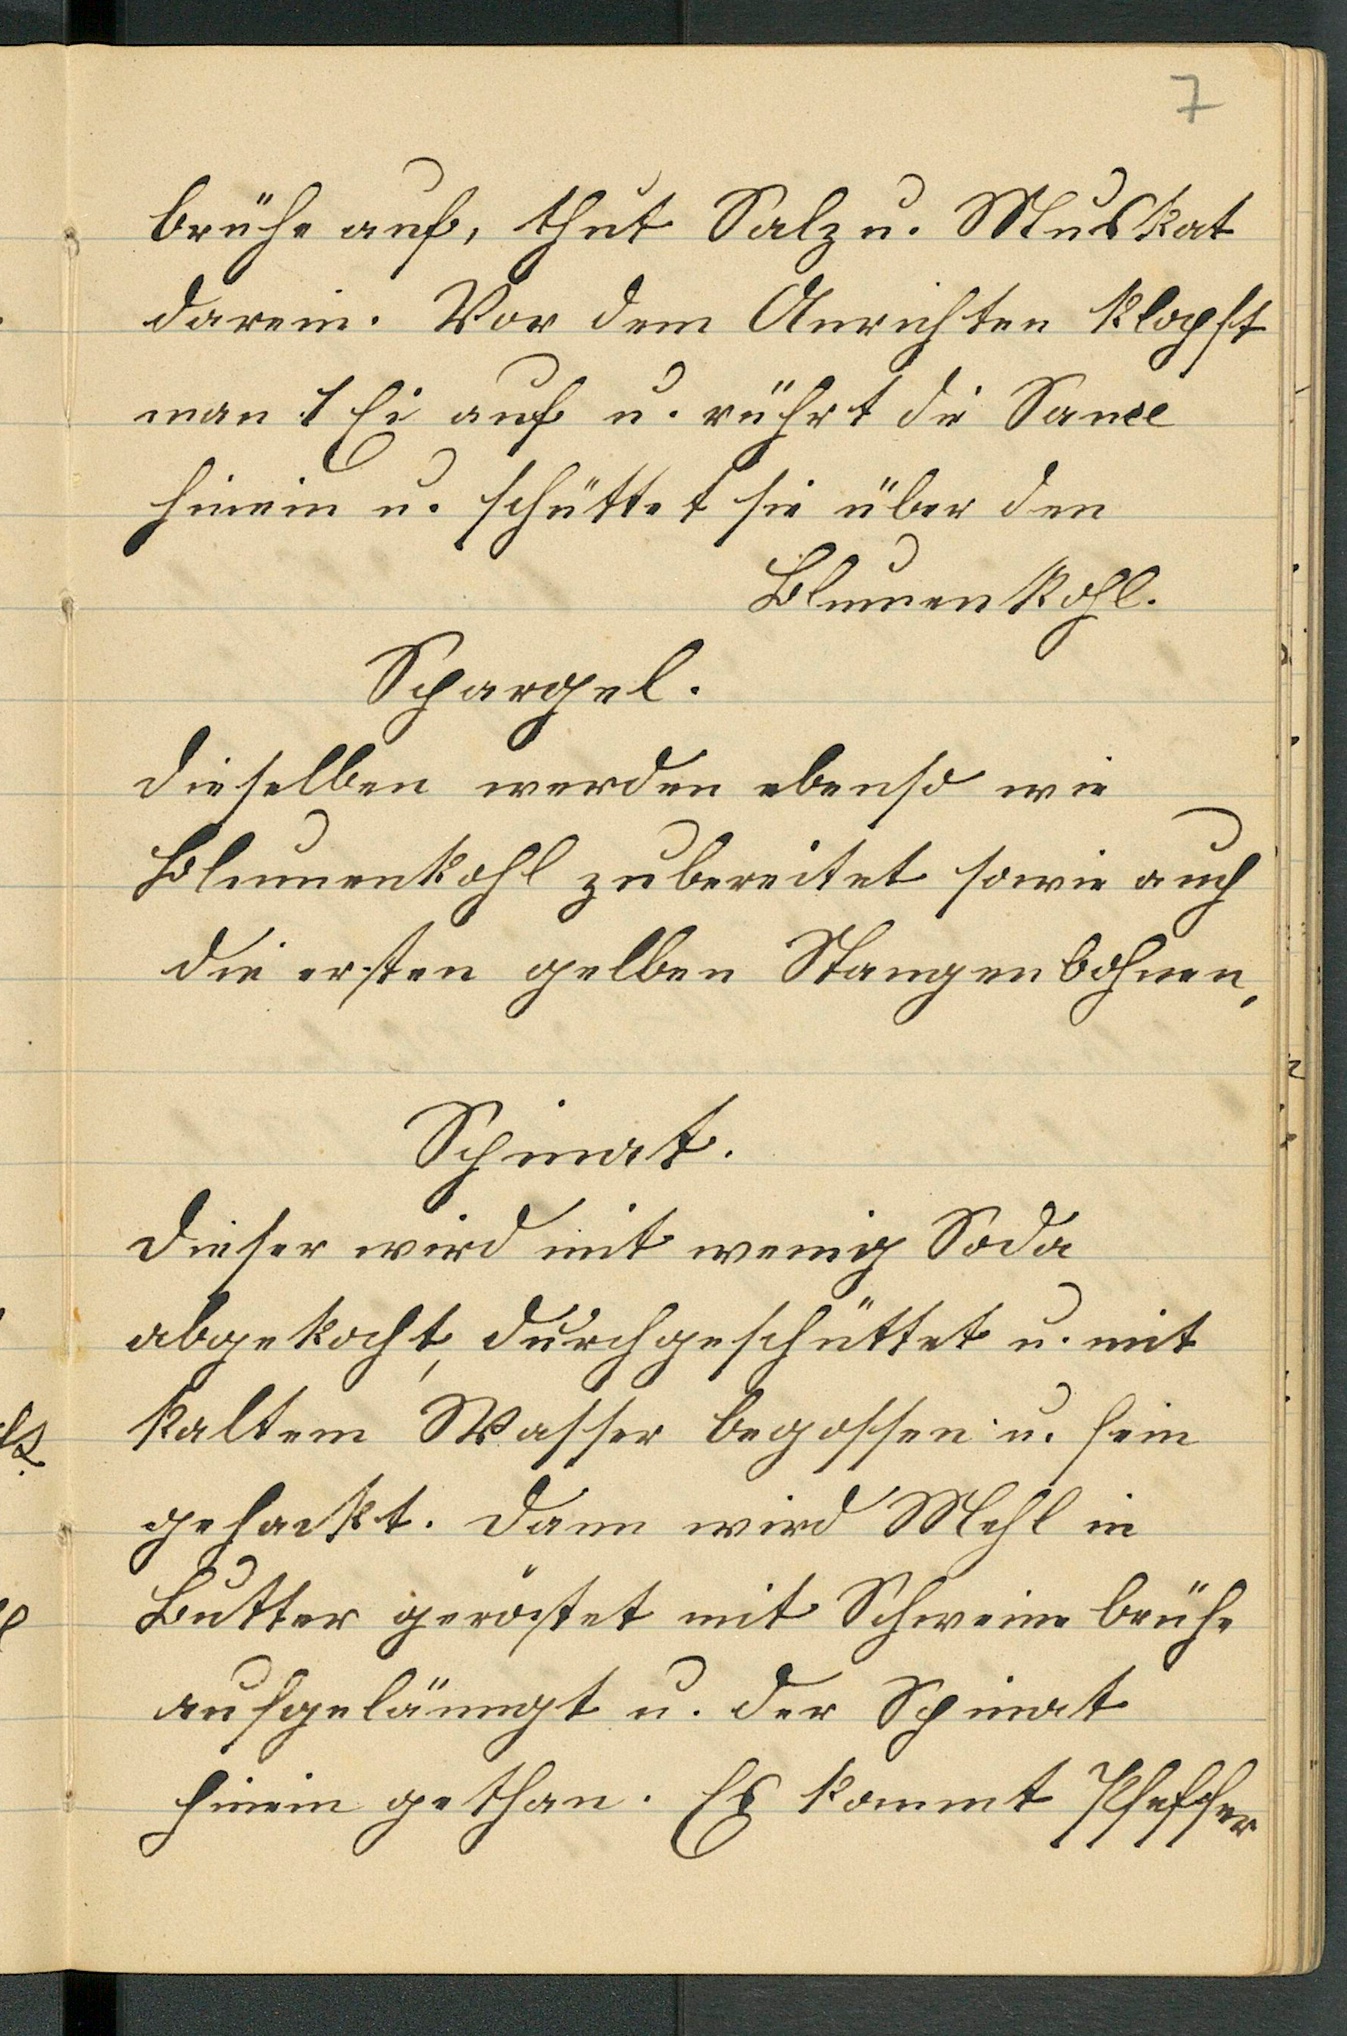 7
brühe auf, thut Salz u. Muskat
darein. Vor dem Anrichten klopft
man 1 Ei auf u. rührt die Sauce
hinein u. schüttet sie über den
Blumenkohl.
Spargel.
Dieselben werden ebenso wie
Blumenkohl zubereitet sowie auch
die ersten gelben Stangenbohnen,
Spinat.
Dieser wird mit wenig Soda
abgekocht, durchgeschüttet u. mit
kaltem Wasser begossen u. fein
gehackt. Dann wird Mehl in
Butter geröstet mit Schweinebrühe
aufgelänngt u. der Spinat
hinein gethan. Es kommt Pfeffer